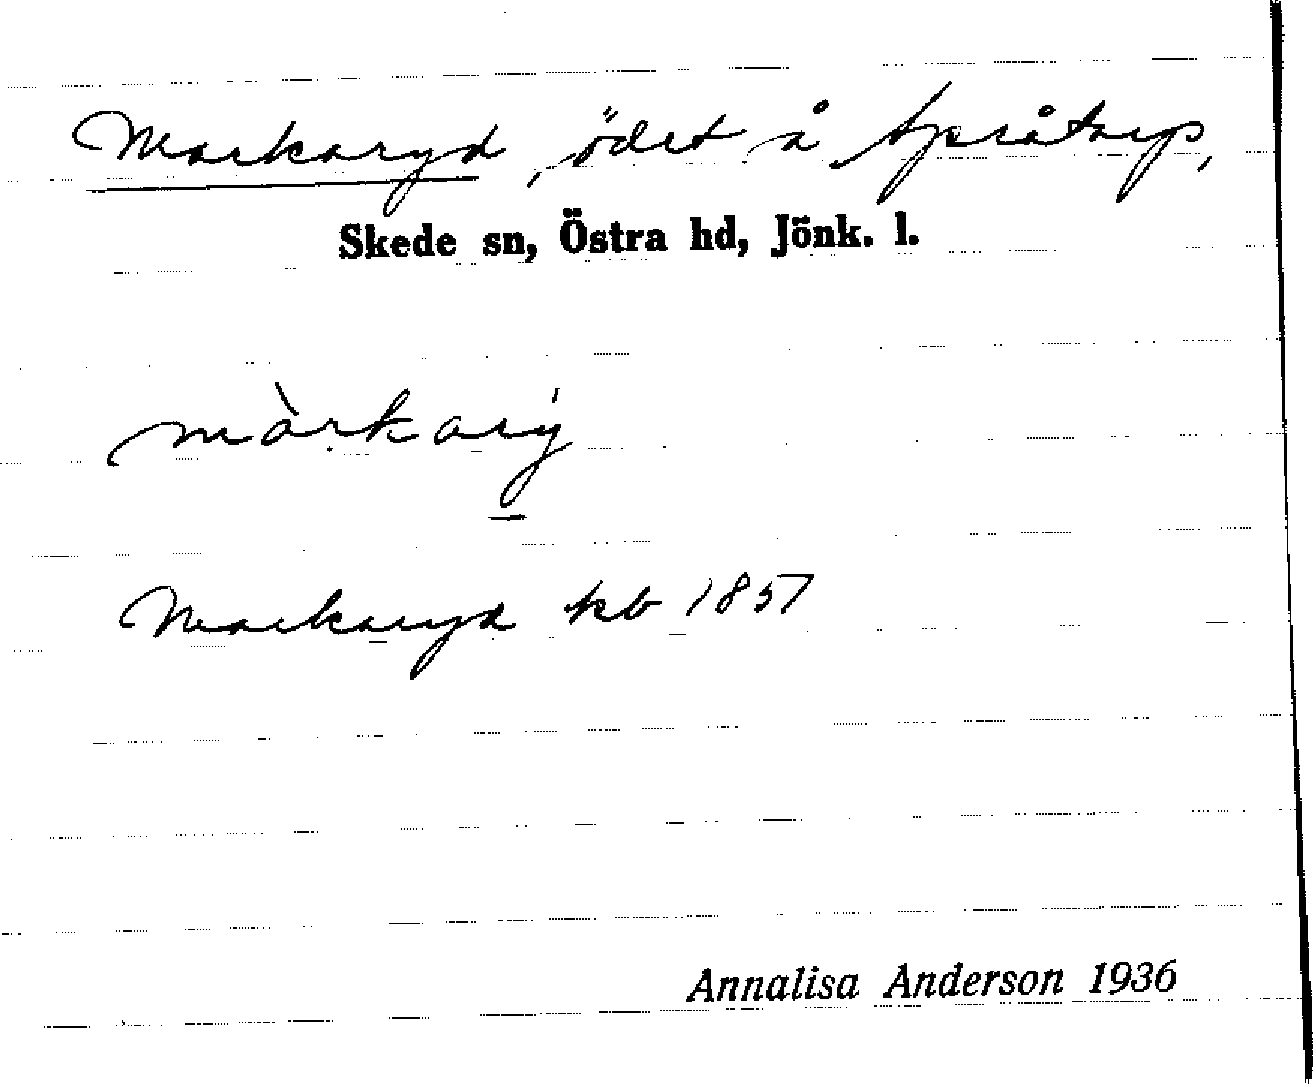 Markaryd, ödet å Språtorp,
Skede sn, Östra hd, Jönk. l.
màrkarý
Markaryd kb 1857
Annalisa Anderson 1936